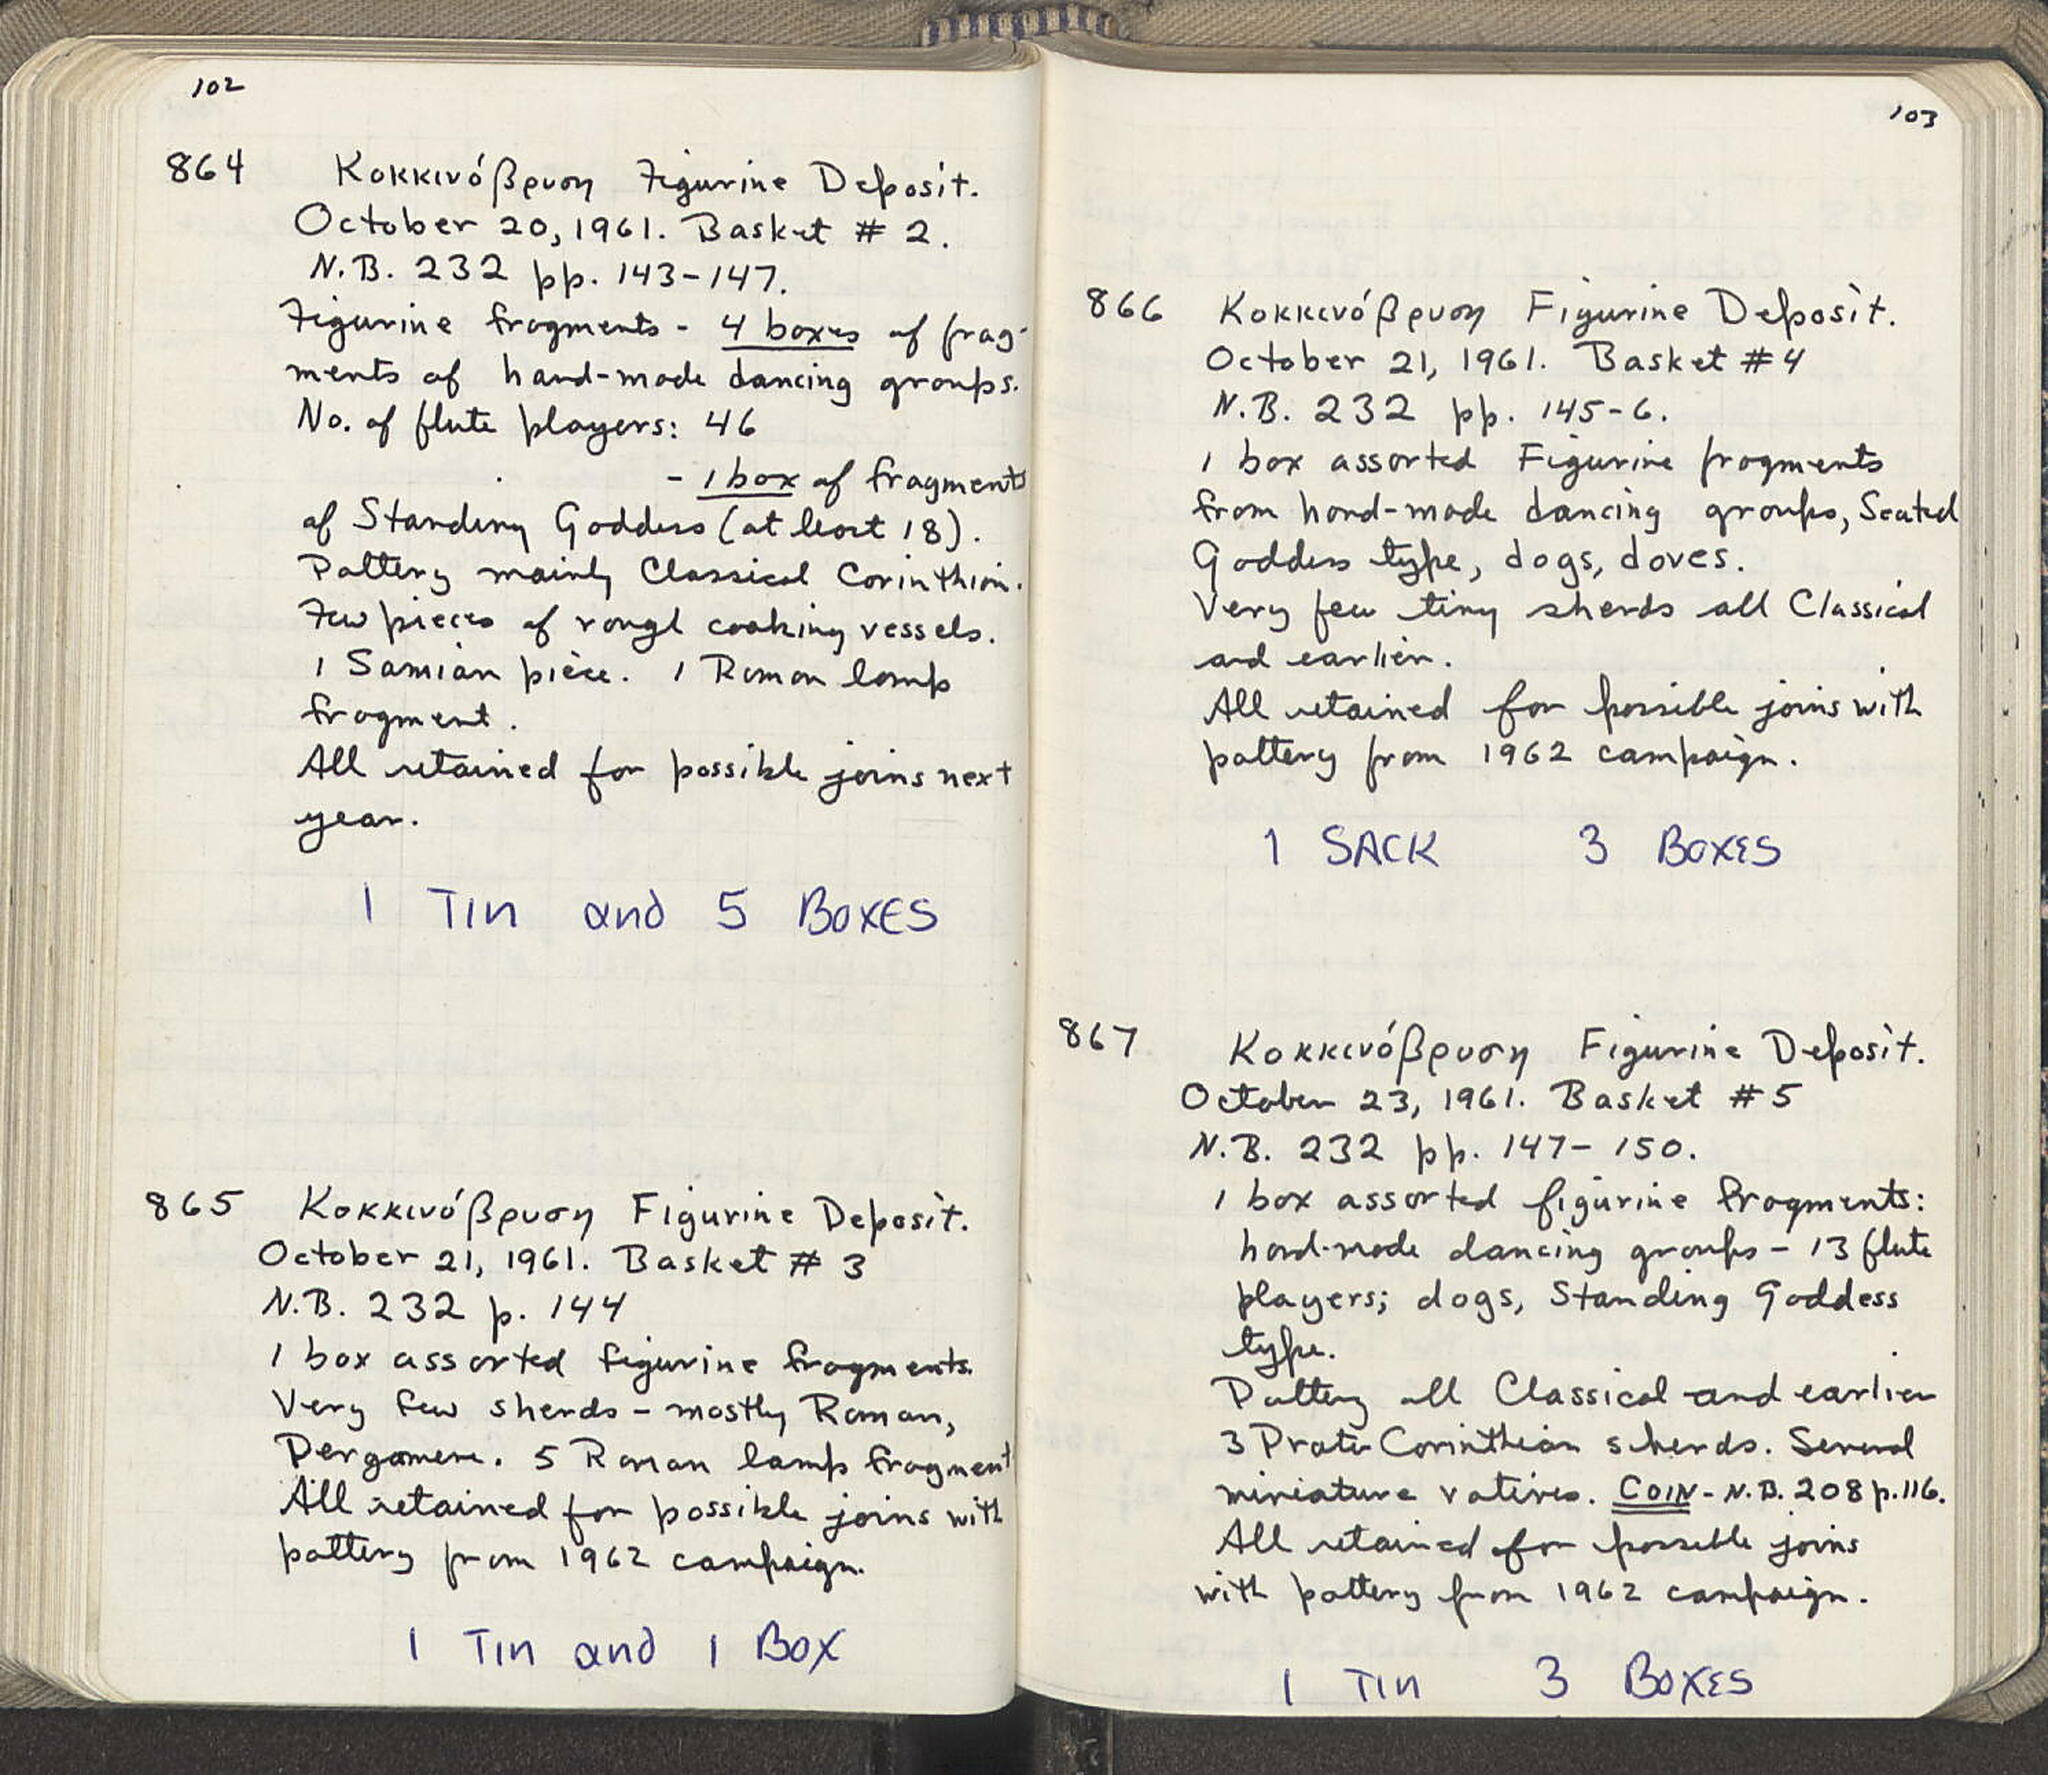 102
864 Κοκκινόβρυση Figurine Deposit.
October 20, 1961. Basket # 2.
N.B. 232 pp. 143-147.
Figurine fragments - 4 boxes of frag-
ments of hand-made dancing groups.
No. of flute players: 46
- 1 box of fragments
of Standing Goddess (at least 18).
Pottery mainly Classical Corinthian.
Few pieces of rough cooking vessels.
1 Samian piece. 1 Roman lamp
fragment.
All retained for possible joins next
year.
1 TIN and 5 BOXES
865 Κοκκινόβρυση Figurine Deposit.
October 21, 1961. Basket # 3
N.B. 232 p. 144
1 box assorted figurine fragments.
Very few sherds - mostly Roman,
Pergamene. 5 Roman lamp fragment
All retained for possible joins with
pottery from 1962 campaign.
1 TIN and 1 BOX
103
866 Κοκκινόβρυση Figurine Deposit.
October 21, 1961. Basket #4
N.B. 232 pp. 145-6.
1 box assorted Figurine fragments
from hand-made dancing groups, Seated
Goddess type, dogs, doves.
Very few tiny sherds all Classical
and earlier.
All retained for possible joins with
pottery from 1962 campaign.
1 SACK 3 BOXES
867 Κοκκινόβρυση Figurine Deposit.
October 23, 1961. Basket #5
N.B. 232 pp. 147-150.
1 box assorted figurine fragments:
hand-made dancing groups - 13 flute
players; dogs, Standing Goddess
type.
Pottery all Classical and earlier
3 Proto Corinthian sherds. Several
miniature votives. COIN - N.B. 208 p.116.
All retained for possible joins
with pottery from 1962 campaign.
1 TIN 3 BOXES